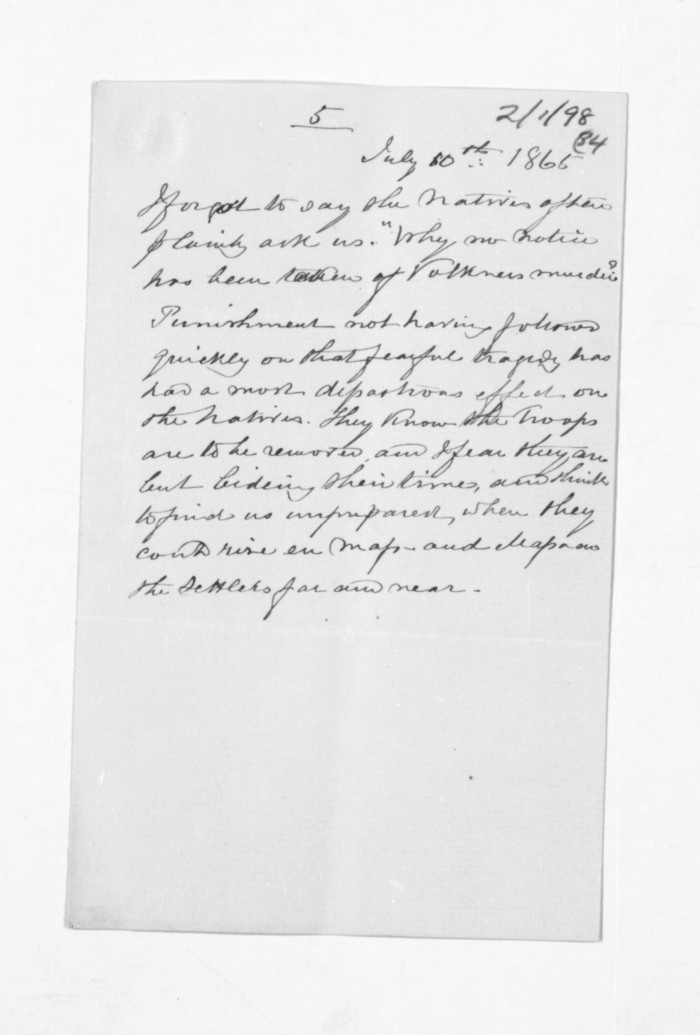 5
2/1/98
84
July 10th 1865
I forgot to say the Natives often
plainly ask us. "Why no notice
has been taken of Volkners murder?
Punishment not having followed
quickly on that fearful tragedy has
had a most disastrous effect on
the Natives. They know the Troops
are to be removed and I fear they are
but bideing their time, and think
to find us unprepared, when they
could rise en mass and
the Settlers far and near.